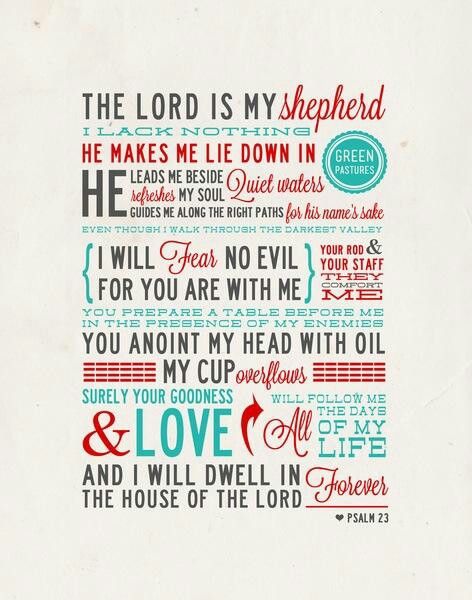 THE LORD IS MY shepherd
I LACK NOTHING
HE MAKES ME LIE DOWN IN GREEN PASTURES
HE LEADS ME BESIDE Quiet waters
refreshes MY SOUL
GUIDES ME ALONG THE RIGHT PATHS for his name's sake
EVEN THOUGH I WALK THROUGH THE DARKEST VALLEY
{ I WILL Fear NO EVIL
FOR YOU ARE WITH ME }
YOUR ROD &
YOUR STAFF
THEY
COMFORT
ME
YOU PREPARE A TABLE BEFORE ME
IN THE PRESENCE OF MY ENEMIES
YOU ANOINT MY HEAD WITH OIL
MY CUP overflows
SURELY YOUR GOODNESS
& LOVE
WILL FOLLOW ME
All THE DAYS
OF MY
LIFE
AND I WILL DWELL IN
THE HOUSE OF THE LORD Forever
❤ PSALM 23